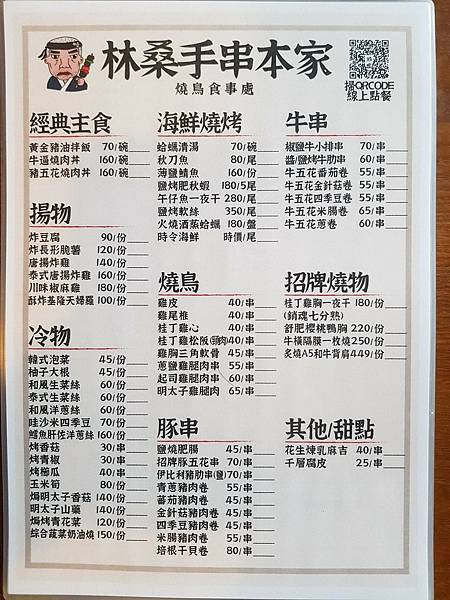 林桑手串本家
燒鳥食事處
掃QRCODE
線上點餐
經典主食
黃金豬油拌飯 70/碗
牛逼燒肉丼 160/碗
豬五花燒肉丼 160/碗
揚物
炸豆腐 90/份
炸長形脆薯 120/份
唐揚炸雞 140/份
泰式唐揚炸雞 160/份
川味椒麻雞 180/份
酥炸基隆天婦羅 100/份
冷物
韓式泡菜 45/份
柚子大根 45/份
和風生菜絲 60/份
泰式生菜絲 60/份
和風洋蔥絲 60/份
哇沙米四季豆 70/份
鱈魚肝佐洋蔥絲 160/份
烤香菇 30/串
烤青椒 30/串
烤櫛瓜 40/串
玉米筍 80/份
焗明太子香菇 140/份
明太子山藥 140/份
焗烤青花菜 120/份
綜合蔬菜奶油燒 150/份
海鮮燒烤
蛤蠣清湯 70/碗
秋刀魚 80/尾
薄鹽鯖魚 160/份
鹽烤肥秋蝦 180/5尾
午仔魚一夜干 280/尾
鹽烤軟絲 350/尾
火燒酒蒸蛤蠣 180/盤
時令海鮮 時價/尾
燒鳥
雞皮 40/串
雞尾椎 40/串
桂丁雞心 40/串
桂丁雞松阪(頸肉)40/串
雞胸三角軟骨 45/串
蔥鹽雞腿肉串 55/串
起司雞腿肉串 60/串
明太子雞腿肉串 65/串
豚串
鹽燒肥腸 45/串
招牌豚五花串 70/串
伊比利豬肋串(鹽)70/串
青蔥豬肉卷 55/串
蕃茄豬肉卷 45/串
金針菇豬肉卷 45/串
四季豆豬肉卷 45/串
米腸豬肉卷 55/串
培根干貝卷 80/串
牛串
椒鹽牛小排串 70/串
醬/鹽烤牛肋串 60/串
牛五花番茄卷 55/串
牛五花金針菇卷 55/串
牛五花四季豆卷 55/串
牛五花米腸卷 65/串
牛五花蔥卷 65/串
招牌燒物
桂丁雞胸一夜干 180/份
(銷魂七分熟)
舒肥櫻桃鴨胸 220/份
牛橫隔膜一枚燒 250/份
炙燒A5和牛背肩 449/份
其他/甜點
花生煉乳麻吉 40/串
千層腐皮 25/串